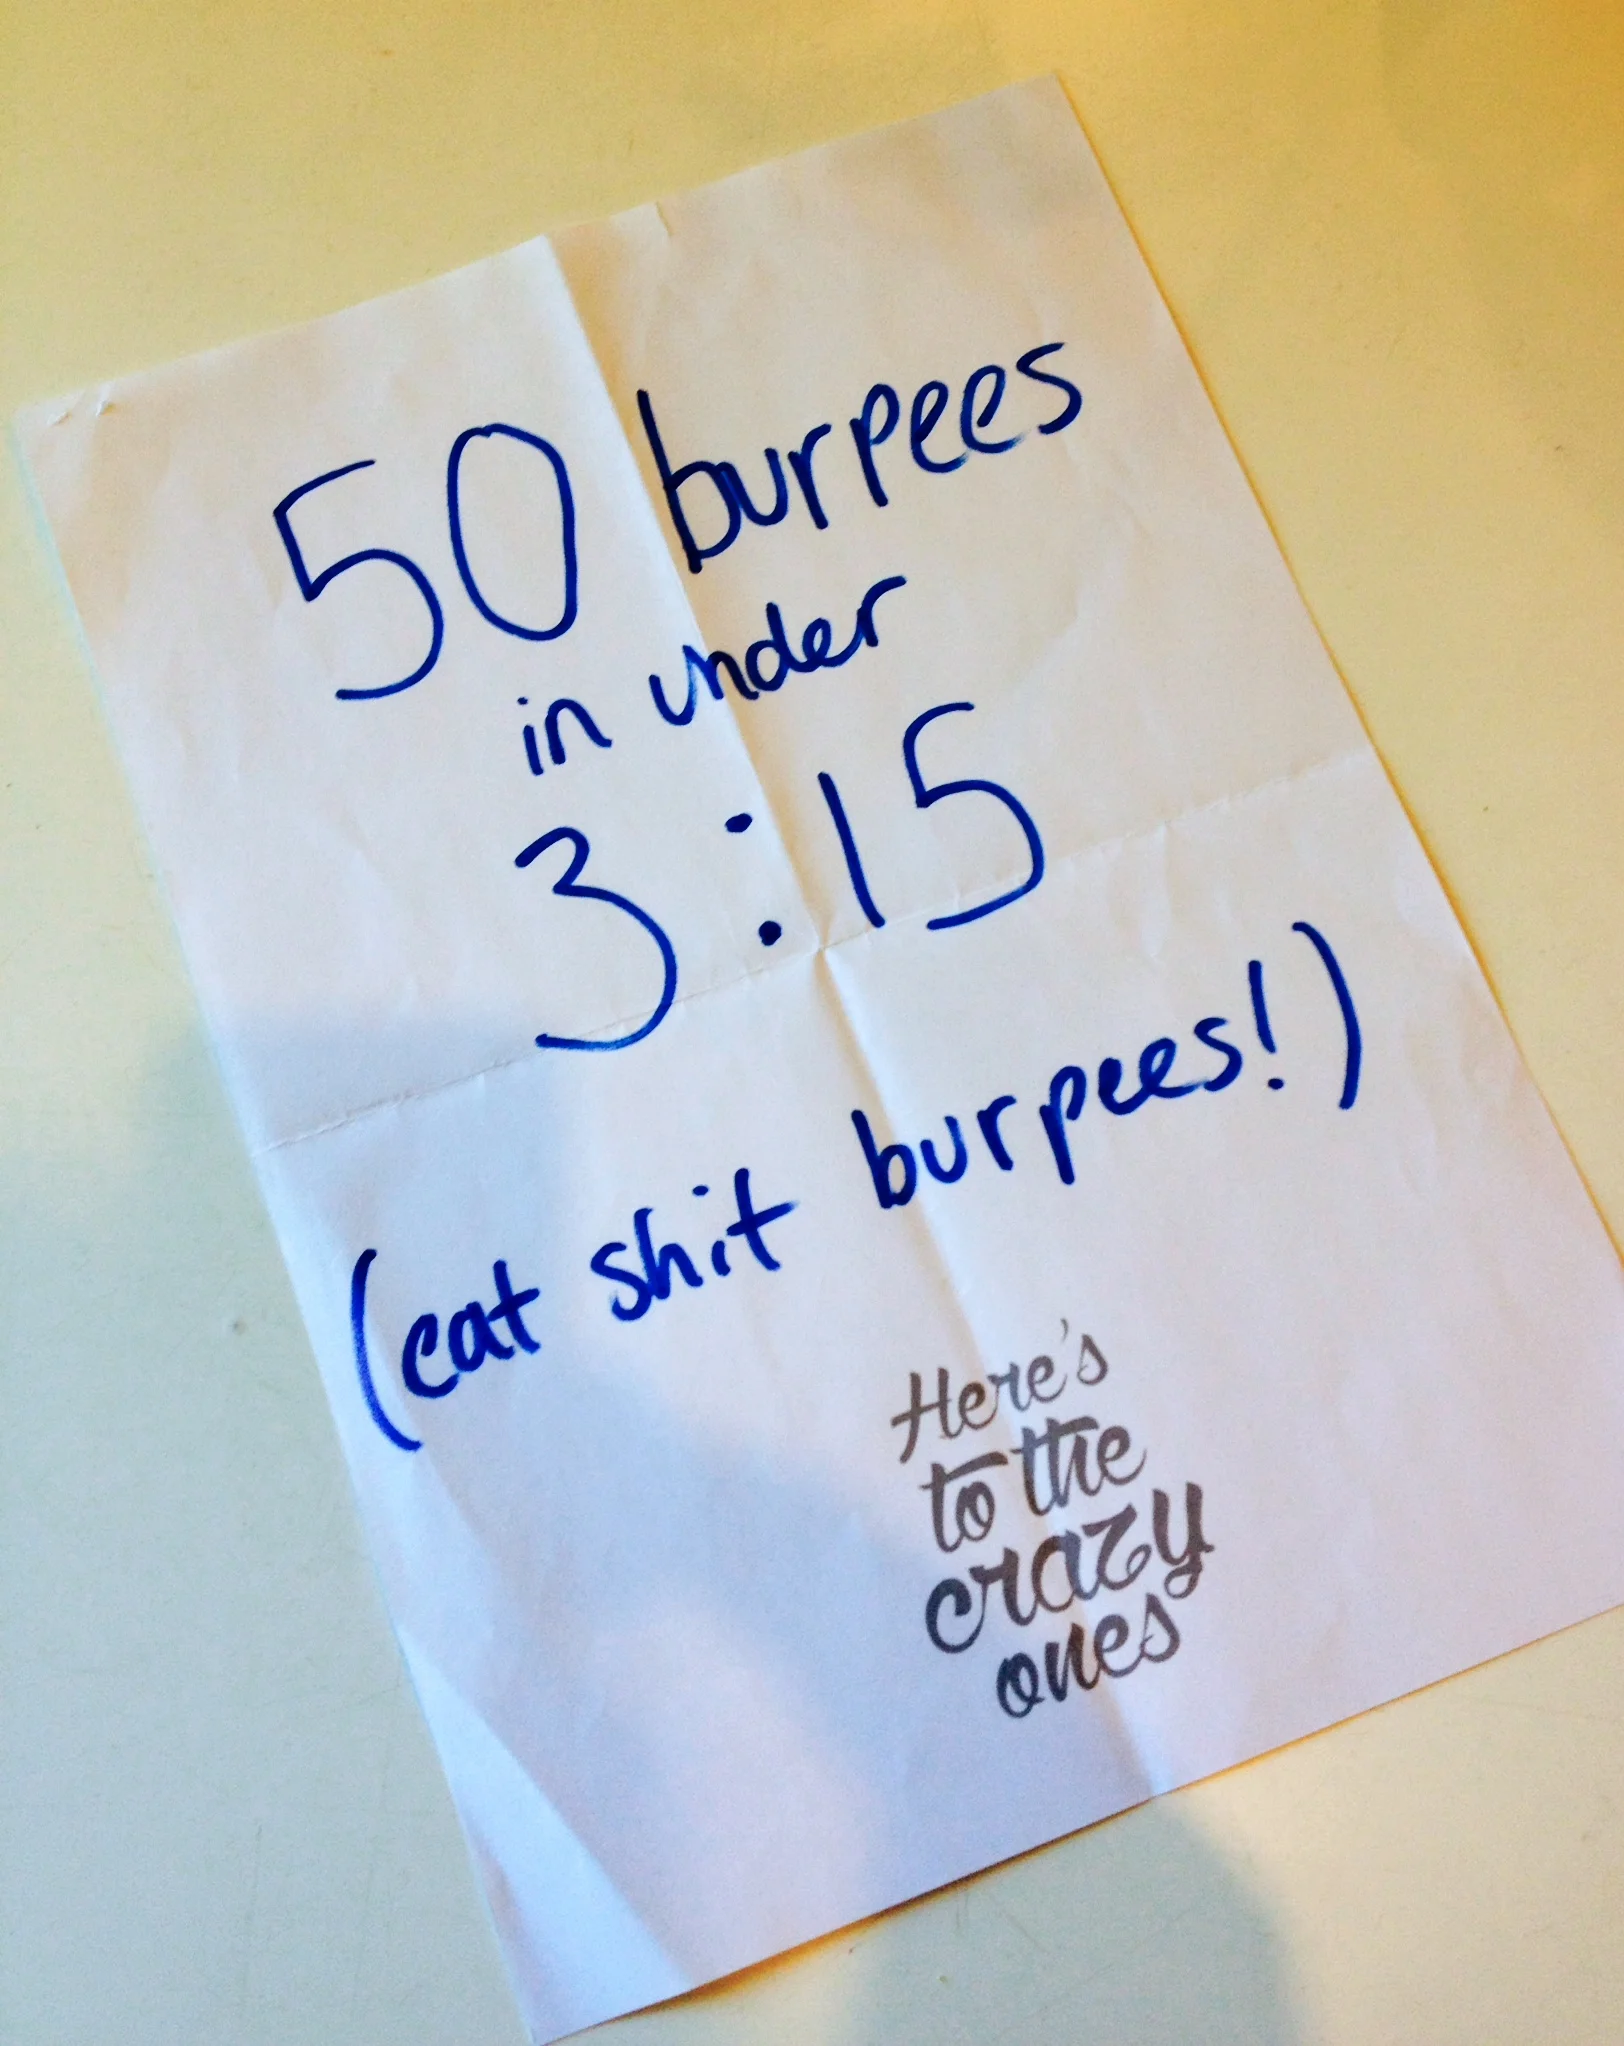 50 burpees
in under
3:15
(eat shit burpees!)
Here's
to the
crazy
ones